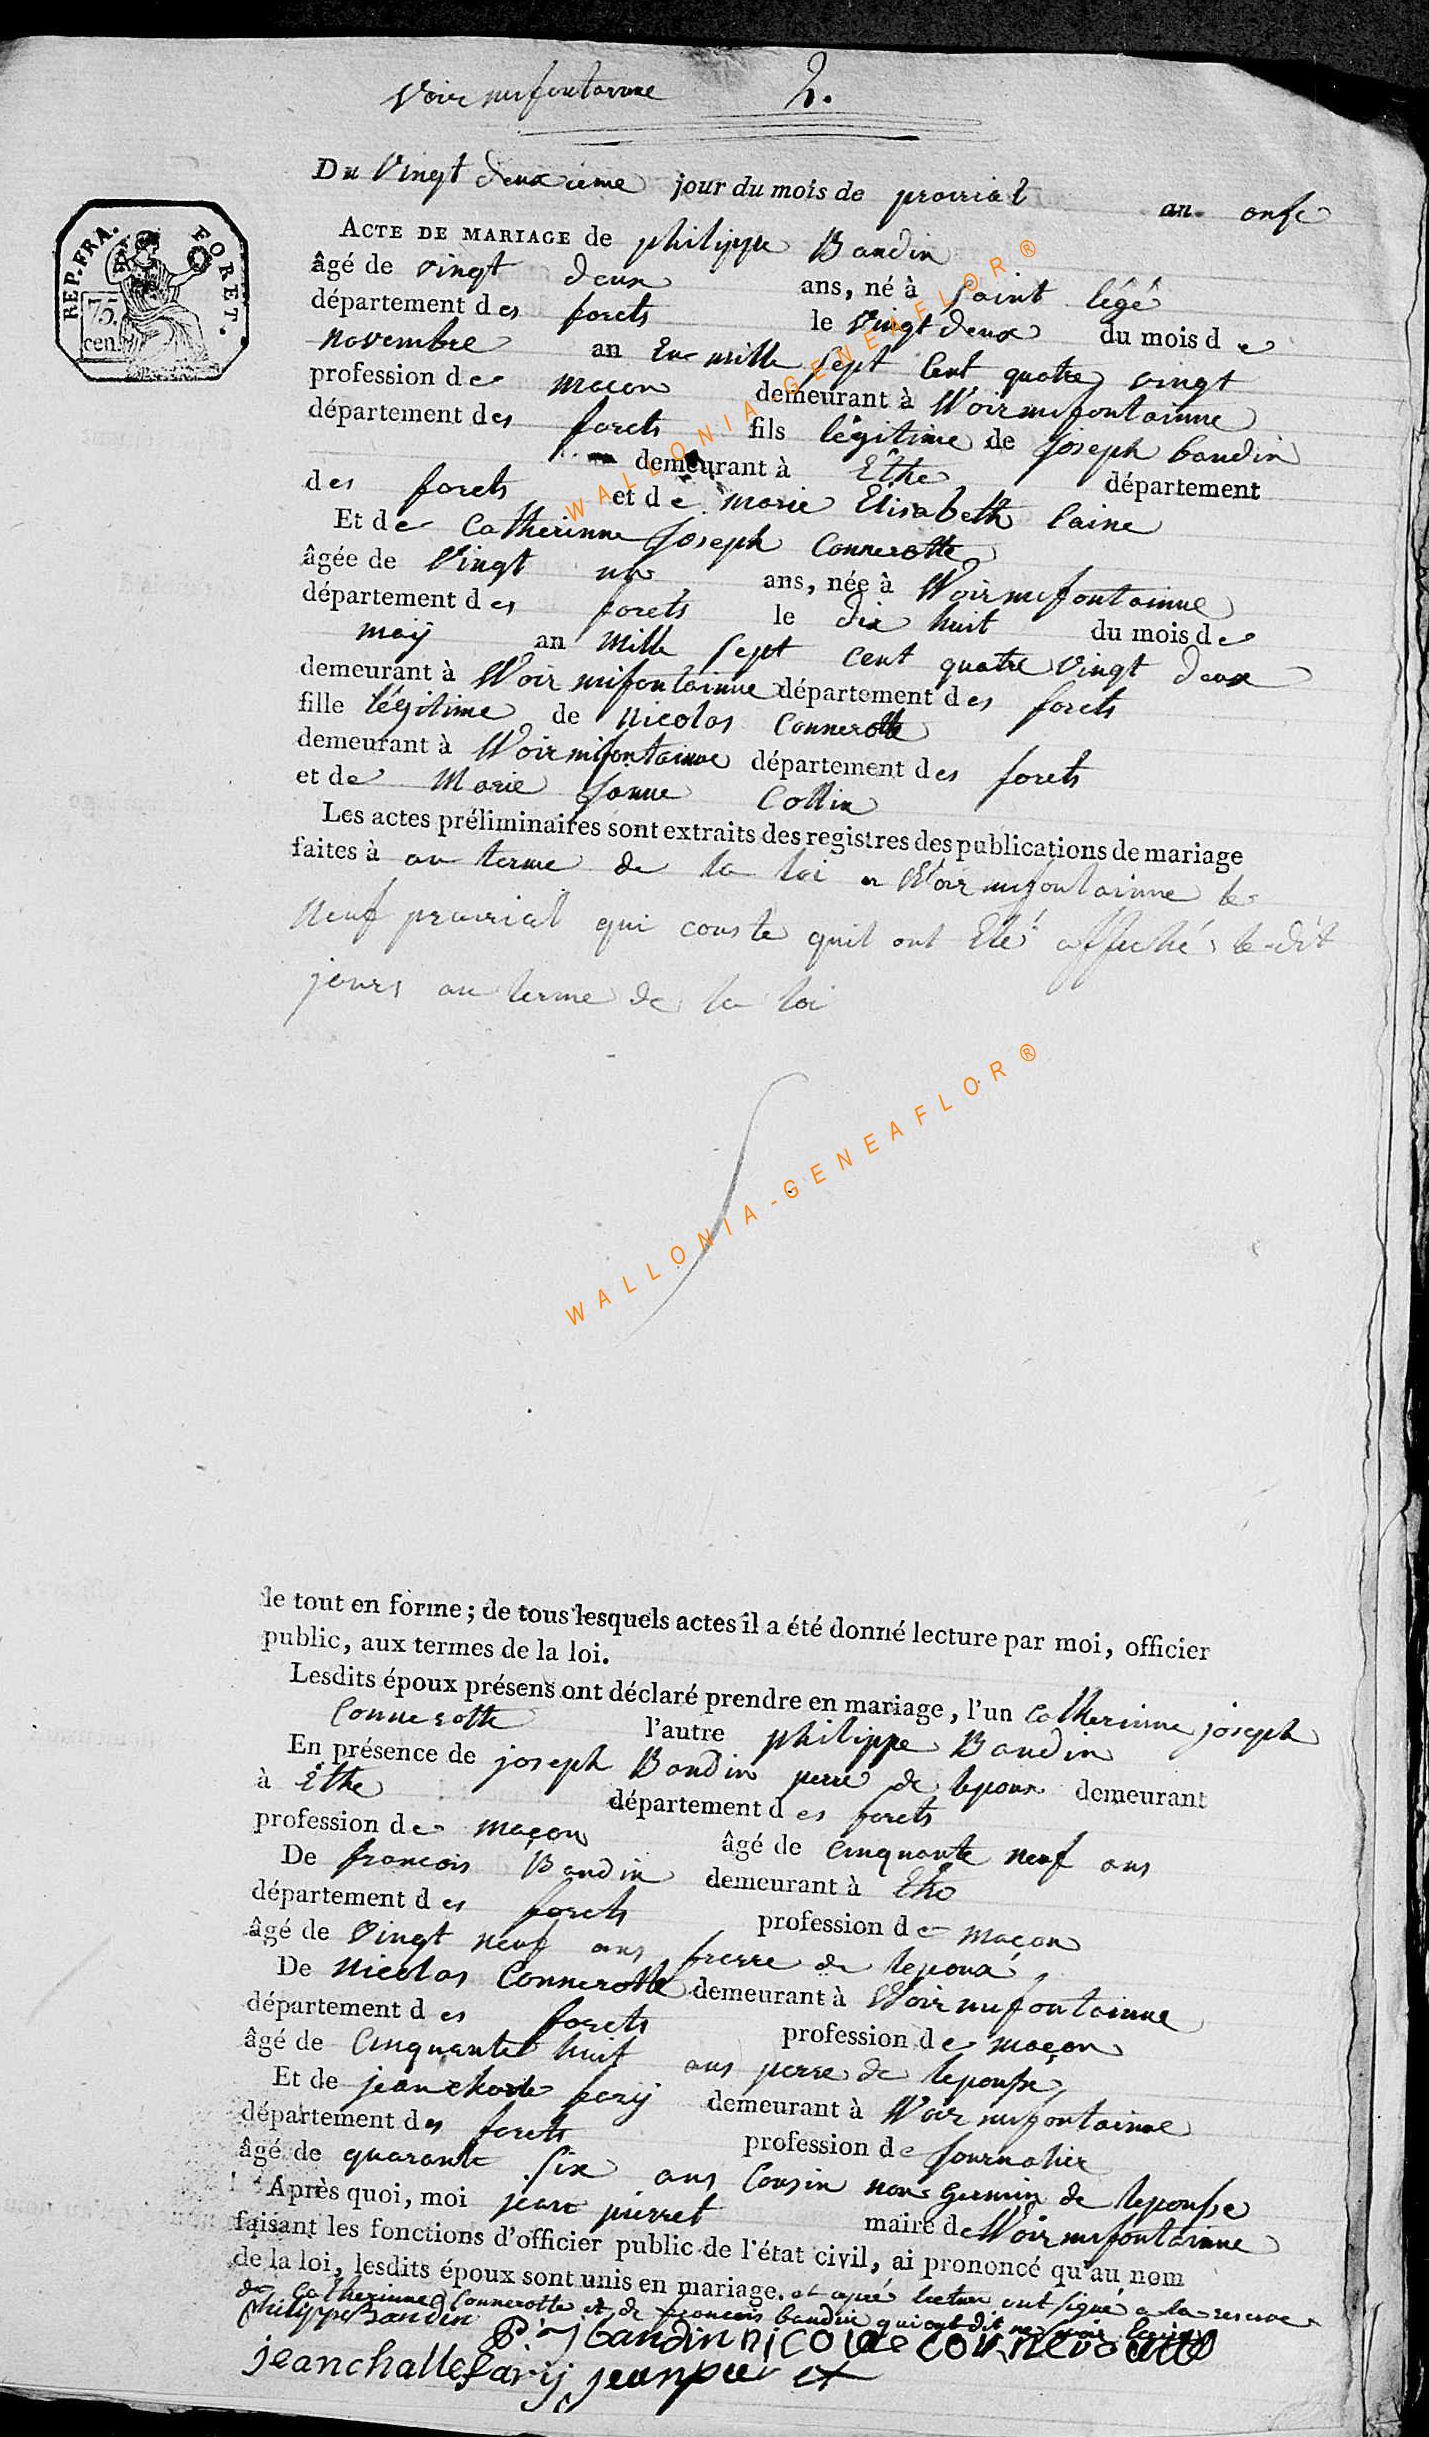 Voir nifontainne 2.
Du Vingt deuxieme jour du mois de prairial an onse
REP. FRA. FORET.
75. cen.
ACTE DE MARIAGE de philippe Baudin
âgé de vingt deux ans, né à saint légé
département des forets le vingt deux du mois de
novembre an En mille sept Cent quatre vingt
profession de macon demeurant à Woirnifontainne
département des forets fils légitime de joseph baudin
demeurant à Ethe département
des forets et de marie Elisabeth laine
Et de Catherinne Joseph Connerotte
âgée de Vingt un ans, née à Woirnifontainne
département des forets le dix huit du mois de
maÿ an mille sept cent quatre vingt deux
demeurant à Woirnifontainne département des forets
fille légitime de Nicolas Connerotte
demeurant à Woirnifontainne département des forets
et de Marie Janne Collin
Les actes préliminaires sont extraits des registres des publications de mariage
faites à au terme de la loi a Woirnifontainne le
Neuf prairial qui conste quil ont Eté affiché le-dit
jours au terme de la loi
WALLONIA-GENEAFLOR®
WALLONIA-GENEAFLOR®
le tout en forme ; de tous lesquels actes il a été donné lecture par moi, officier
public, aux termes de la loi.
Lesdits époux présens ont déclaré prendre en mariage, l'un Catherinne joseph
Connerotte l'autre philippe Baudin
En présence de joseph Baudin perre de lepoux demeurant
à Ethe département des forets
profession de maçon âgé de cinquante neuf ans
De francois Baudin demeurant à Ethe
département des forets profession de macon
âgé de vingt neuf ans frerre de lepoux
De Nicolas Connerotte demeurant à Woirnifontainne
département des forets profession de maçon
âgé de Cinquante huit ans perre de lepouse
Et de jean charle farÿ demeurant à Woirnifontainne
département des forets profession de Journalier
âgé de quarante six ans Cousin non Germin de lepouse
Après quoi, moi jean pierret maire de Woirnifontainne
faisant les fonctions d'officier public de l'état civil, ai prononcé qu'au nom
de la loi, lesdits époux sont unis en mariage. et apré lecture ont signé a la reserve
de Catherinne Connerotte et de francois baudin qui ont dit ne
philippe Baudin
j baudin nicolae connerotte
jean challe farij jean pierret